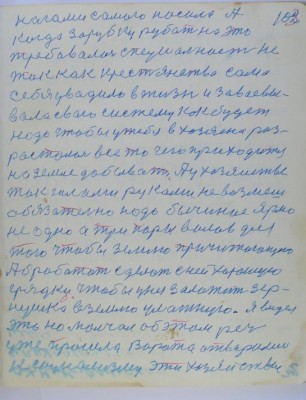 ногами самого посила А
102
когда зарубку рубат на это
требовался специалност не
так как крестянства само
себя увадило в жизни и завоевы-
вала своего систему как будет
надо чтобы у тебя в хозяена раз-
ростался все то чего приходится
на земле добывать. А у хозяистве
так голыми руками не возмеш
обязателно надо бычиное ярмо
не одно а три пары волов для
того чтобы землю
Абработат сделат с ней хорошую
грядку чтобы у ней заложит зер-
нушко в землю влажную. Я видел
это но молчал об этом рез
уже прошла Ворота отварени
к сацыализму эти хозяйстви